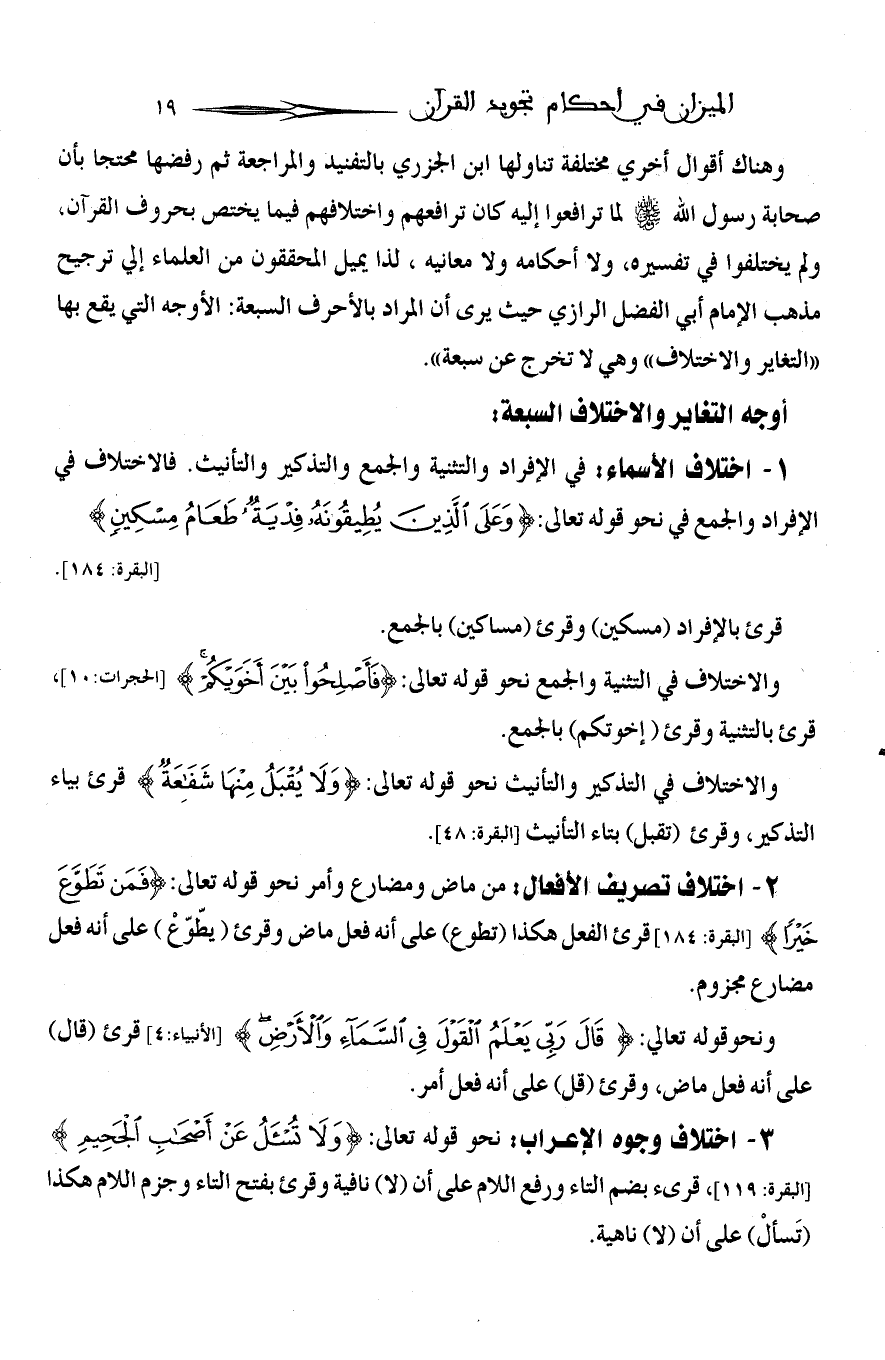 الميزان في أحكام تجويد القرآن ١٩
وهناك أقوال أخري مختلفة تناولها ابن الجزري بالتفنيد والمراجعة ثم رفضها محتجا بأن
صحابة رسول الله ﷺ لما ترافعوا إليه كان ترافعهم واختلافهم فيما يختص بحروف القرآن،
ولم يختلفوا في تفسيره، ولا أحكامه ولا معانيه ، لذا يميل المحققون من العلماء إلي ترجيح
مذهب الإمام أبي الفضل الرازي حيث يرى أن المراد بالأحرف السبعة: الأوجه التي يقع بها
«التغاير والاختلاف» وهي لا تخرج عن سبعة».
أوجه التغاير والاختلاف السبعة:
١- اختلاف الأسماء: في الإفراد والتثنية والجمع والتذكير والتأنيث. فالاختلاف في
الإفراد والجمع في نحو قوله تعالى: ﴿وَعَلَى ٱلَّذِينَ يُطِيقُونَهُۥ فِدْيَةٌ طَعَامُ مِسْكِينٍ﴾
[البقرة: ١٨٤].
قرئ بالإفراد (مسكين) وقرئ (مساكين) بالجمع.
والاختلاف في التثنية والجمع نحو قوله تعالى: ﴿فَأَصْلِحُوا۟ بَيْنَ أَخَوَيْكُمْ ۚ﴾ [الحجرات: ١٠]،
قرئ بالتثنية وقرئ ( إخوتكم) بالجمع.
والاختلاف في التذكير والتأنيث نحو قوله تعالى: ﴿وَلَا يُقْبَلُ مِنْهَا شَفَٰعَةٌ﴾ قرئ بياء
التذكير، وقرئ (تقبل) بتاء التأنيث [البقرة: ٤٨].
٢- اختلاف تصريف الأفعال: من ماض ومضارع وأمر نحو قوله تعالى: ﴿فَمَن تَطَوَّعَ
خَيْرًا﴾ [البقرة: ١٨٤] قرئ الفعل هكذا (تطوع) على أنه فعل ماض وقرئ ( يطّوّعْ ) على أنه فعل
مضارع مجزوم.
ونحوقوله تعالي: ﴿ قَالَ رَبِّى يَعْلَمُ ٱلْقَوْلَ فِى ٱلسَّمَآءِ وَٱلْأَرْضِ ۖ ﴾ [الأنبياء:٤] قرئ (قال)
على أنه فعل ماض، وقرئ (قل) على أنه فعل أمر.
٣- اختلاف وجوه الإعراب: نحو قوله تعالى: ﴿وَلَا تُسْـَٔلُ عَنْ أَصْحَٰبِ ٱلْجَحِيمِ﴾
[البقرة: ١١٩]، قرىء بضم التاء ورفع اللام على أن (لا) نافية وقرئ بفتح التاء وجزم اللام هكذا
(تَسألْ) على أن (لا) ناهية.